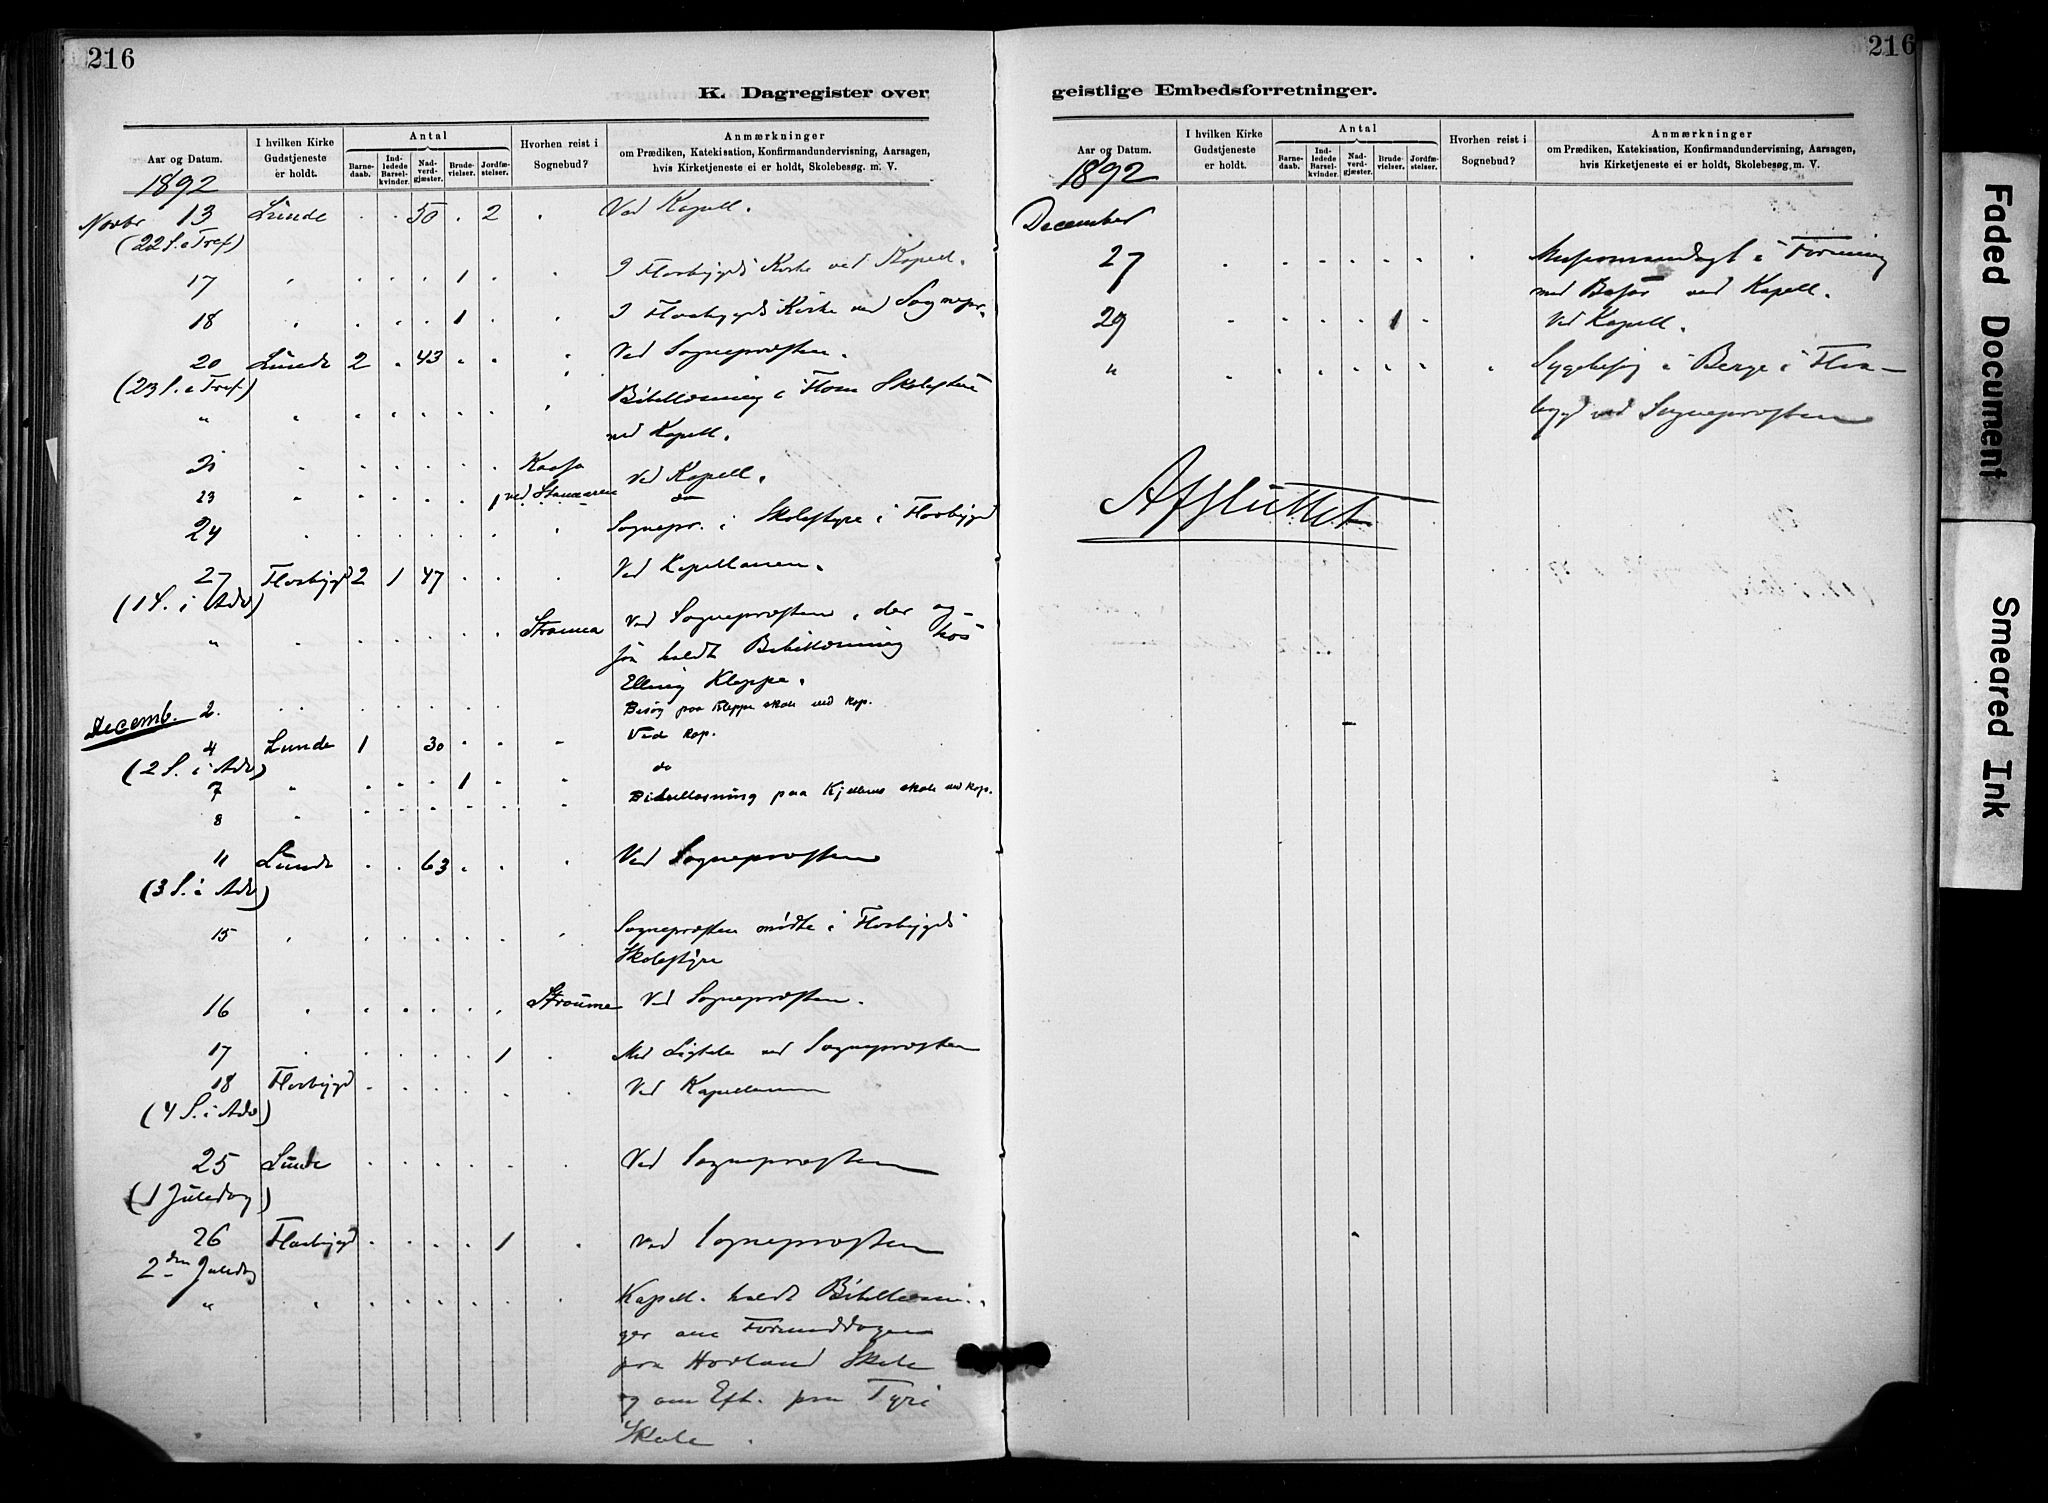 216
K. Dagregister over
Aar og Datum.
I hvilken Kirke Gudstjeneste er holdt.
Antal
Barne-daab.
Ind-ledede Barsel-kvinder.
Nad-verd-gjæster.
Brude-vielser.
Jordfæ-stelser.
Hvorhen reist i Sognebud?
Anmærkninger
om Prædiken, Katekisation, Konfirmandundervisning, Aarsagen,
hvis Kirketjeneste ei er holdt, Skolebesøg. m. V.
1892
Novbr 13 Lunde . . 50 . 2 . Ved Kapell.
(22 S. e Tref)
17 " . . . 1 . . I Flaabygds Kirke ved Kapell.
18 " . . . 1 . . I Flaabygds Kirke ved Sognepr.
20 Lunde 2 . 43 . . . Ved Sognepræsten.
(23 S. e Tref)
" " . . . . . . Bibellæsning i Flom Skolestue
ved Kapell.
21 " . . . . . Kaasa Ved Kapell.
23 " . . . . 1 do
24 . . . . . . . Sognepr. i Skolestyre i Flaabygd
27 Flaabygd 2 1 47 . . . Ved Kapellanen.
(1 S. i Adv)
" " . . . . . Strauma Ved Sognepræsten, der og-
saa holdt Bibellæsning hos
Elling Kleppe.
Decemb. 2. " . . . . . Besøg paa Kleppe skole ved Kap.
4 Lunde 1 30 . . . Ved Kap.
(2 S. i Adv)
7 " . . . 1 . . do
8 " . . . . . . Bibellæsning paa skole ved Kap.
11 Lunde . . 63 . . . Ved Sognepræsten
(3 S. i Adv)
15 " . . . . . . Sognepræsten mødte i Flaabygds
Skolestyre
16 . . . . . . Straume Ved Sognepræsten.
17 . . . . . 1 . Med Ligtale ved Sognepræsten
18 Flaabygd . . . . . . Ved Kapellanen
(4 S. i Adv)
25 Lunde . . . . . . Ved Sognepræsten
(1 Juledag)
26 Flaabygd . . . . 1 . Ved Sognepræsten
2den Juledag
" " . . . . . . Kapell. holdt Bibellæsnin-
ger om Formiddagen
paa Hovland Skole
og om Eft. paa Tyri
Skole.
216
geistlige Embedsforretninger.
Aar og Datum.
I hvilken Kirke Gudstjeneste er holdt.
Antal
Barne-daab.
Ind-ledede Barsel-kvinder.
Nad-verd-gjæster.
Brude-vielser.
Jordfæ-stelser.
Hvorhen reist i Sognebud?
Anmærkninger
om Prædiken, Katekisation, Konfirmandundervisning, Aarsagen,
hvis Kirketjeneste ei er holdt, Skolebesøg. m. V.
1892
December
27 . . . . . . . i Forening
med Basar ved Kapell.
29 . . . . 1 . Ved Kapell.
" . . . . . . . Sygebesøg i Berge i Flaa-
bygd ved Sognepræsten
Afsluttet
Faded Document
Smeared Ink